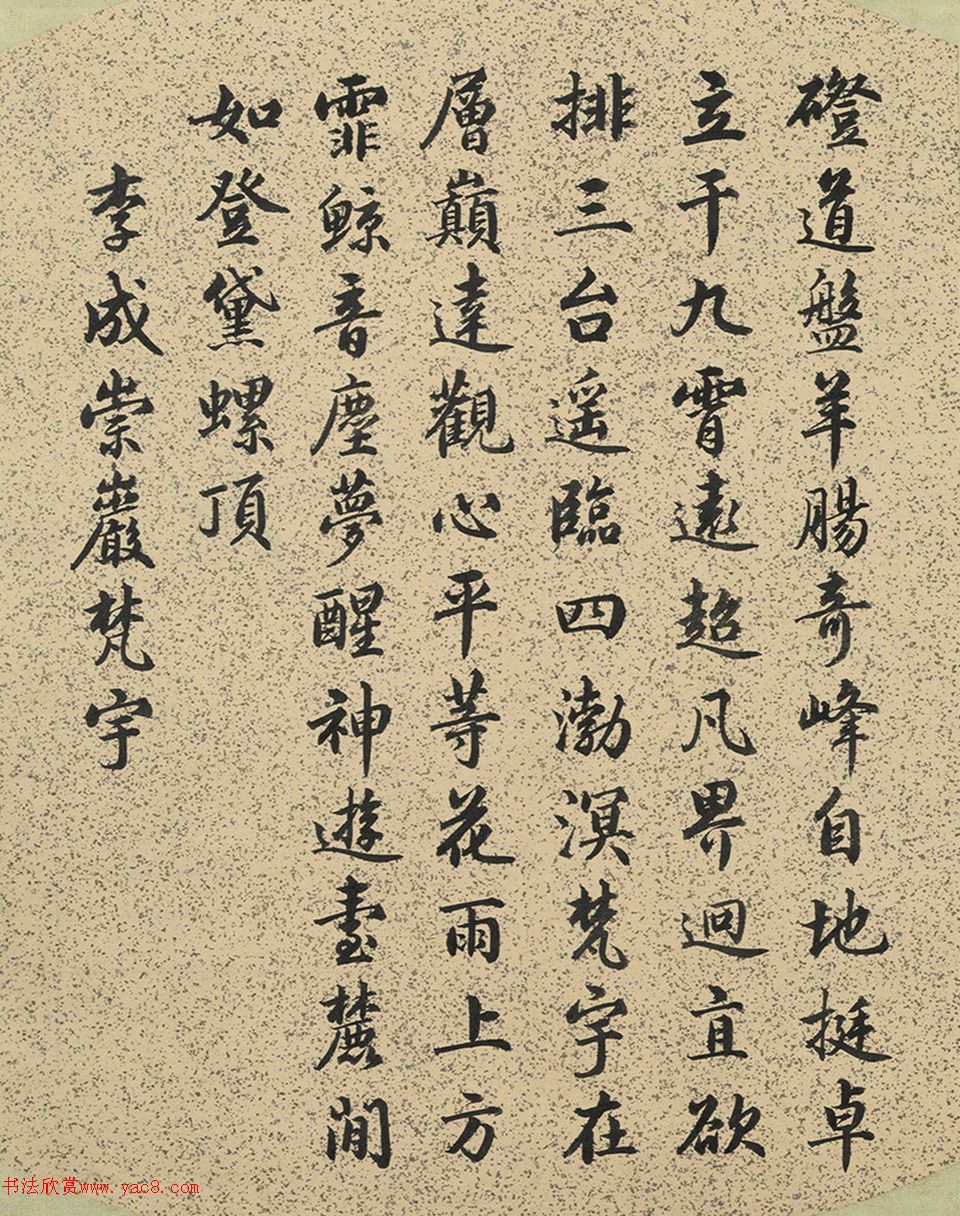 磴道盤羊腸奇峰自地挺卓
立干九霄遠超凡界迥直欲
排三台遥臨四渤溟梵宇在
層巔達觀心平等花雨上方
霏鯨音塵夢醒神遊臺麓間
如登黛螺頂
李成崇巖梵宇
书法欣赏www.yac8.com